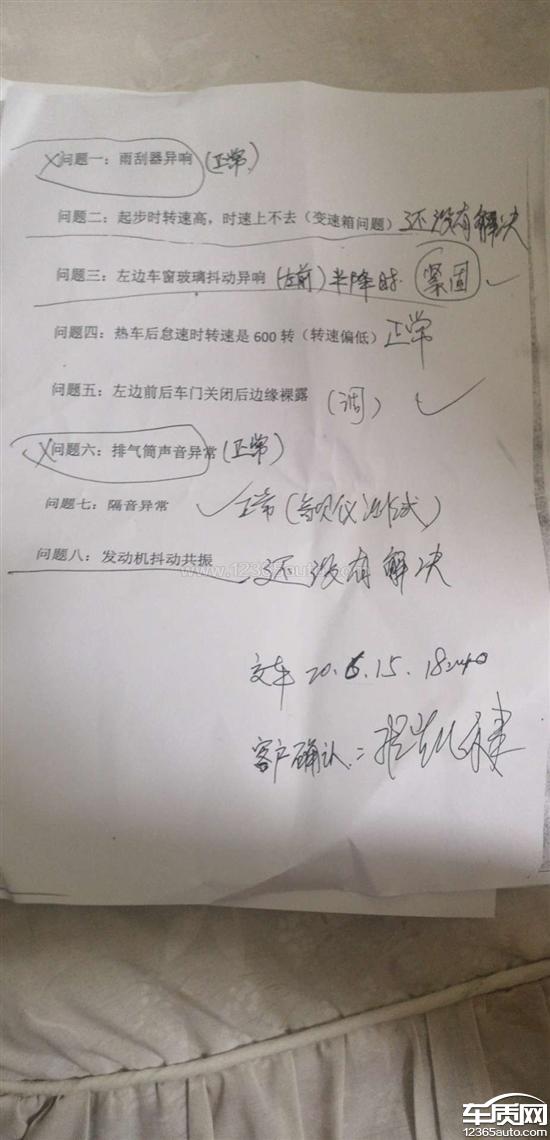 问题一：雨刮器异响（正常）
问题二：起步时转速高，时速上不去（变速箱问题）还没有解决
问题三：左边车窗玻璃抖动异响（左前）半降时 紧固
问题四：热车后怠速时转速是 600 转（转速偏低）正常
问题五：左边前后车门关闭后边缘裸露（调）
问题六：排气筒声音异常（正常）
问题七：隔音异常 正常（分贝仪测试）
问题八：发动机抖动共振 还没有解决
www.12365auto.com
交车 20.6.15.18:40
客户确认：
车质网
12365auto.com